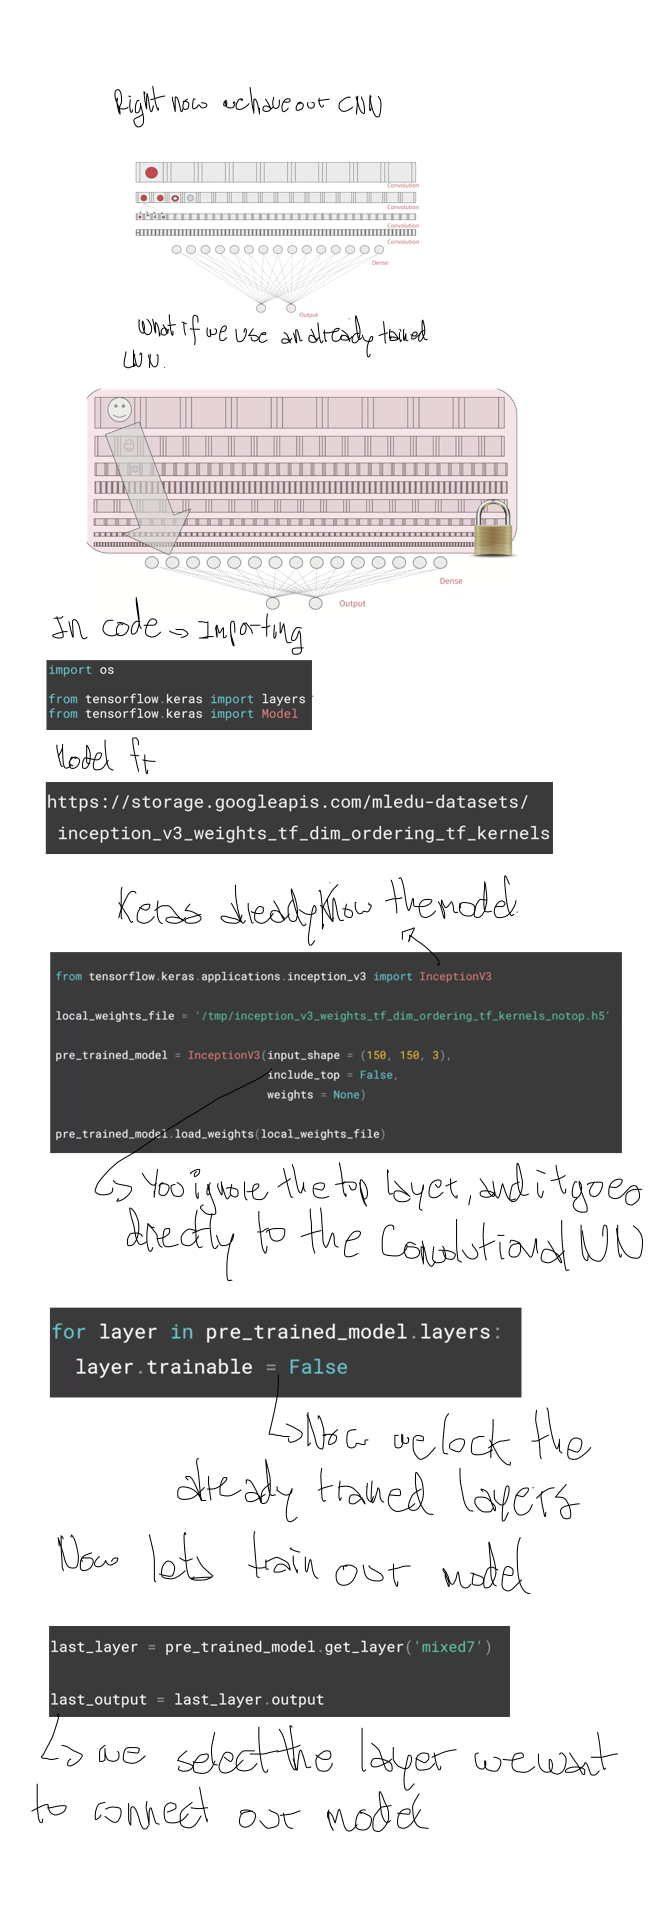 Right now we have our CNN
Convolution
Convolution
Convolution
Convolution
Dense
Output
What if we use an already trained
CNN.
Dense
Output
In code → Importing
import os
from tensorflow.keras import layers
from tensorflow.keras import Model
Model
https://storage.googleapis.com/mledu-datasets/
inception_v3_weights_tf_dim_ordering_tf_kernels
Keras already know the model.
from tensorflow.keras.applications.inception_v3 import InceptionV3
local_weights_file = '/tmp/inception_v3_weights_tf_dim_ordering_tf_kernels_notop.h5'
pre_trained_model = InceptionV3(input_shape = (150, 150, 3),
include_top = False,
weights = None)
pre_trained_model.load_weights(local_weights_file)
You ignore the top layer, and it goes
directly to the Convolutional NN
for layer in pre_trained_model.layers:
layer.trainable = False
Now we lock the
already trained layers
Now lets train our model
last_layer = pre_trained_model.get_layer('mixed7')
last_output = last_layer.output
we select the layer we want
to connect our model